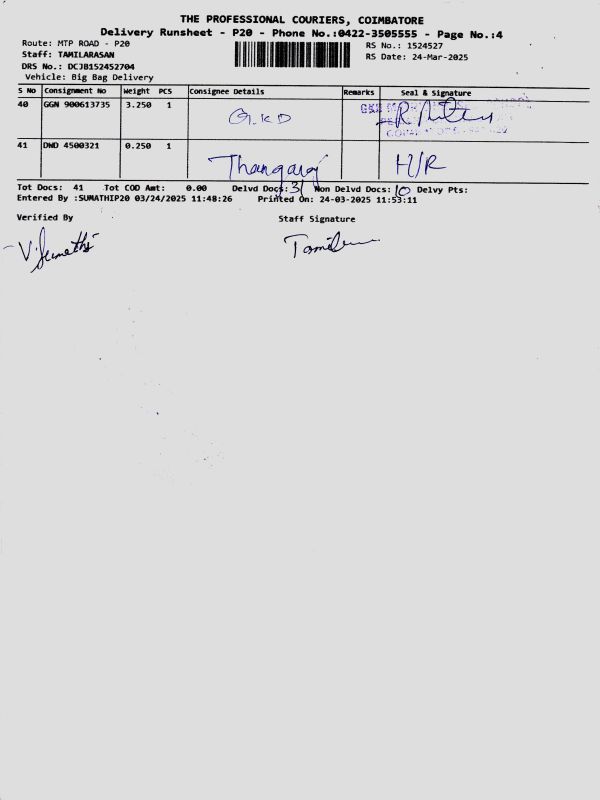 THE PROFESSIONAL COURIERS, COIMBATORE
Delivery Runsheet - P20 - Phone No.:0422-3505555 - Page No.:4
Route: MTP ROAD - P20 RS No.: 1524527
Staff: TAMILARASAN RS Date: 24-Mar-2025
DRS No.: DCJB152452704
Vehicle: Big Bag Delivery
S No Consignment No Weight PCS Consignee Details Remarks Seal & Signature
40 GGN 900613735 3.250 1 G.K.D
41 DWD 4500321 0.250 1 Thangaraj H/R
Tot Docs: 41 Tot COD Amt: 0.00 Delvd Docs: 31 Non Delvd Docs: 10 Delvy Pts:
Entered By :SUMATHIP20 03/24/2025 11:48:26 Printed On: 24-03-2025 11:53:11
Verified By Staff Signature
V. Sumathi